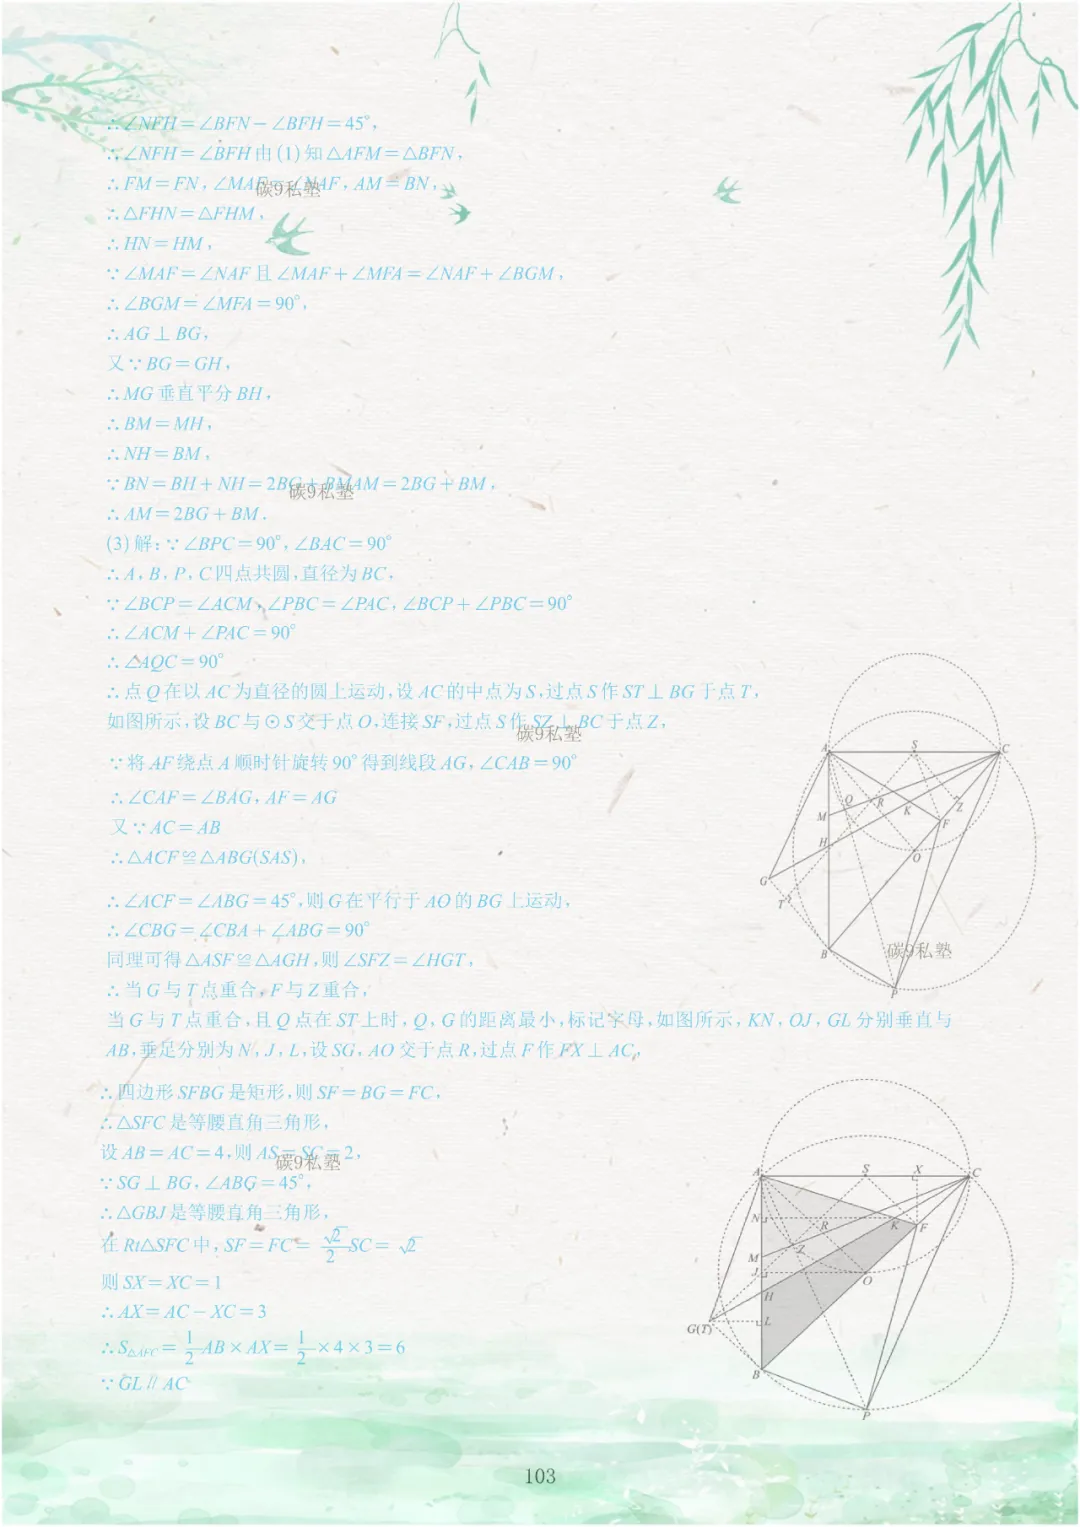 ∴∠NFH=∠BFN-∠BFH=45°,
∴∠NFH=∠BFH由(1)知△AFM=△BFN,
∴FM=FN,∠MAF=∠NAF,AM=BN,
碳9私塾
∴△FHN=△FHM,
∴HN=HM,
∵∠MAF=∠NAF且∠MAF+∠MFA=∠NAF+∠BGM,
∴∠BGM=∠MFA=90°,
∴AG⊥BG,
又∵BG=GH,
∴MG垂直平分BH,
∴BM=MH,
∴NH=BM,
∵BN=BH+NH=2BG+BMAM=2BG+BM,
碳9私塾
∴AM=2BG+BM.
(3)解:∵∠BPC=90°,∠BAC=90°
∴A,B,P,C四点共圆,直径为BC,
∵∠BCP=∠ACM,∠PBC=∠PAC,∠BCP+∠PBC=90°
∴∠ACM+∠PAC=90°
∴△AQC=90°
∴点Q在以AC为直径的圆上运动,设AC的中点为S,过点S作ST⊥BG于点T,
如图所示,设BC与⊙S交于点O,连接SF,过点S作SZ⊥BC于点Z,
碳9私塾
∵将AF绕点A顺时针旋转90°得到线段AG,∠CAB=90°
∴∠CAF=∠BAG,AF=AG
又∵AC=AB
∴△ACF≌△ABG(SAS),
∴∠ACF=∠ABG=45°,则G在平行于AO的BG上运动,
∴∠CBG=∠CBA+∠ABG=90°
同理可得△ASF≌△AGH,则∠SFZ=∠HGT,
∴当G与T点重合,F与Z重合,
当G与T点重合,且Q点在ST上时,Q,G的距离最小,标记字母,如图所示,KN,OJ,GL分别垂直与
AB,垂足分别为N,J,L,设SG,AO交于点R,过点F作FX⊥AC,
∴四边形SFBG是矩形,则SF=BG=FC,
∴△SFC是等腰直角三角形,
设AB=AC=4,则AS=SC=2,
碳9私塾
∵SG⊥BG,∠ABG=45°,
∴△GBJ是等腰直角三角形,
在Rt△SFC中,SF=FC=√2/2SC=√2
则SX=XC=1
∴AX=AC-XC=3
∴S△AFC=1/2AB×AX=1/2×4×3=6
∵GL∥AC
A S C
M Q R K Z F
H O
G T
B P
碳9私塾
A S X C
N R K F
M Z
J O
H
G(T) L
B
P
103